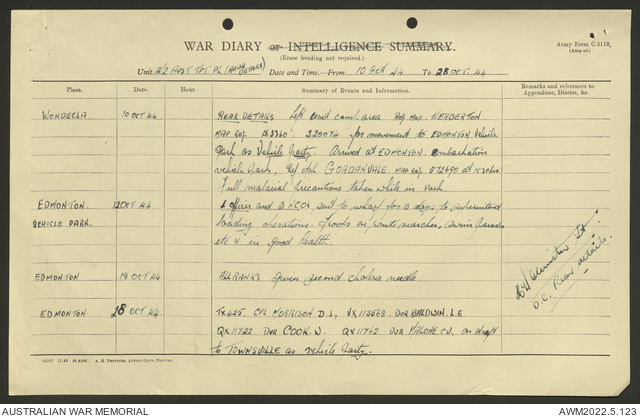 WAR DIARY or INTELLIGENCE SUMMARY.
(Erase heading not required.)
Army Form C.2118.
Unit 2/2 AUST TPT PL (REAR DETAILS) Date and Time.—From 10 Oct 44 To 28 OCT. 44
Place. Date. Hour. Summary of Events and Information. Remarks and references to Appendices, Diaries, &c.
WONDECLA 10 OCT 44 REAR DETAILS left unit camp area Ref Map HERBERTON
MAP Ref. 320074 for movement to EDMONTON Vehicle
Park as Vehicle Party. Arrived at EDMONTON embarkation
vehicle Park, Ref Map GORDONVALE MAP Ref 572690 at
Full malarial precautions taken while in Park.
EDMONTON 12 OCT 44 1 Officer and 3 NCOs sent to wharf for 3 days to
VEHICLE PARK. loading operations. Troops on route marches, swim parades
etc & in good health.
EDMONTON 18 OCT 44 All RANKS given second cholera needle.
EDMONTON 28 OCT 44 TX425. CPL MORRISON D.J., VX113568. DVR BALDWIN. L.E.
QX11722. DVR COOK. W. QX11762. DVR MALONE. C.V. on draft
to TOWNSVILLE as vehicle party.
Lt
O.C. Rear details.
AUSTRALIAN WAR MEMORIAL
AWM2022.5.123